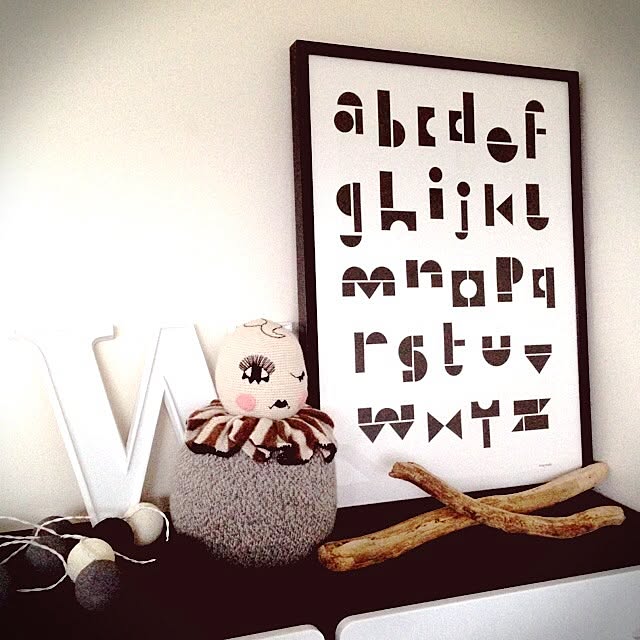 W
abcdef
ghijkl
mnopq
rstuv
wxyz